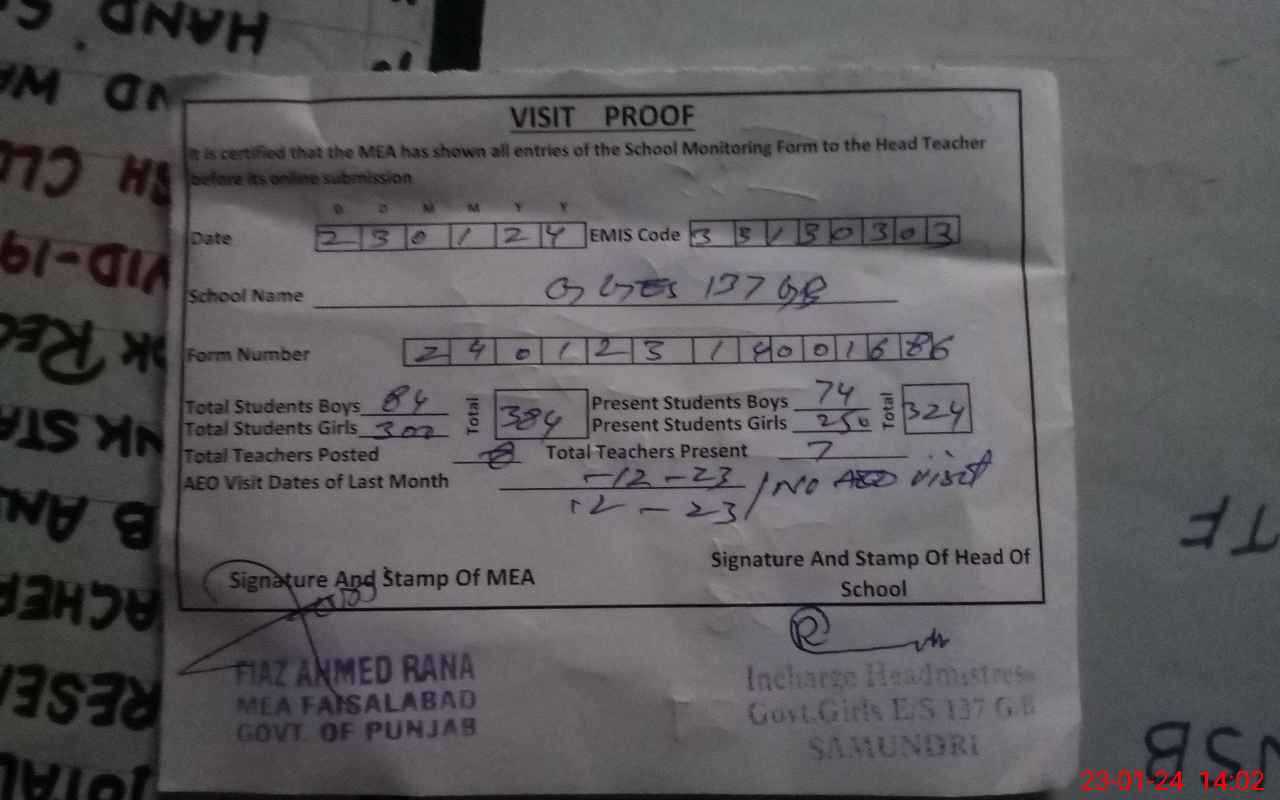 VISIT PROOF
It is certified that the MEA has shown all entries of the School Monitoring Form to the Head Teacher
before its online submission
D D M M Y Y
Date 230124 EMIS Code 33130303
School Name GGES 137 GB
Form Number 24012314001686
Total Students Boys 84 Total 384 Present Students Boys 74 Total 324
Total Students Girls 300 Present Students Girls 250
Total Teachers Posted 8 Total Teachers Present 7
AEO Visit Dates of Last Month -12-23 / No AEO visit
12 - 23
Signature And Stamp Of MEA
Signature And Stamp Of Head Of
School
FIAZ AHMED RANA
MEA FAISALABAD
GOVT. OF PUNJAB
Incharge Headmistress
Govt.Girls E/S 137 G.B
SAMUNDRI
HAND
ND WA
SH CLO
VID-19
OK REC
NK STA
B AN
ACHER
RESE
TOTAL
TF
NSB
23-01-24 14:02